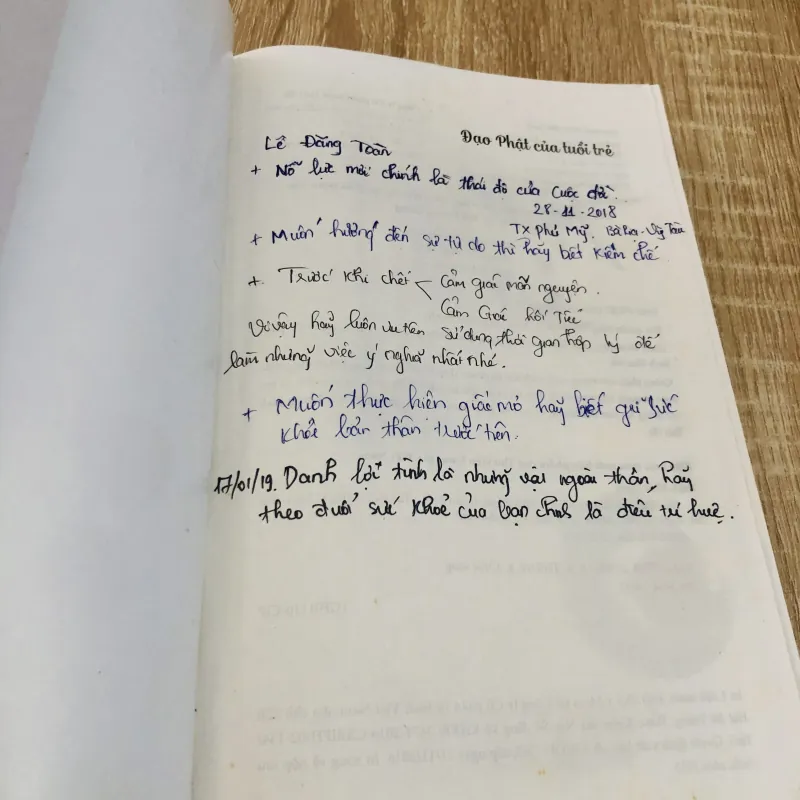 Đạo Phật của tuổi trẻ
Lê Đăng Toàn
+ Nỗ lực mới chính là thái độ của cuộc đời.
28-11-2018
TX Phú Mỹ. Bà Rịa - Vũng Tàu
+ Muốn hướng đến sự tự do thì hãy biết kiềm chế
+ Trước khi chết < Cảm giác mãn nguyện.
Cảm Giác hối Tiếc
Vì vậy hãy luôn ưu tiên sử dụng thời gian hợp lý để
làm những việc ý nghĩa nhất nhé.
+ Muốn thực hiện giấc mơ hãy biết giữ sức
khỏe bản thân trước tiên.
17/01/19. Danh lợi tình là những vật ngoài thân, hãy
theo đuổi sức khoẻ của bạn chính là điều trí huệ.